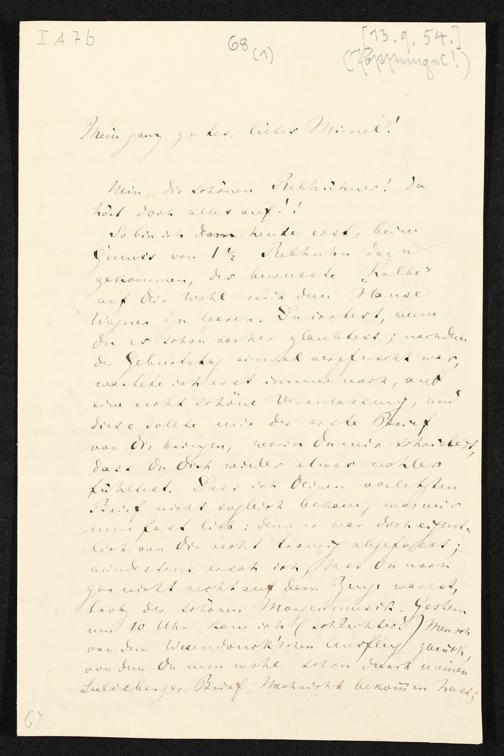 I A 7 b
68 (1)
[13. 9. 54.]
Mein ganz gutes, liebes Mienel!
Nein, die schönen Rebhühner! Da
hört doch alles auf!!
So bin ich denn heute erst, beim
Genuss von 1 1/2 Rebhuhn dazu
gekommen, die bewusste "halbe"
auf Dein Wohl mit dem Hause
Wagner zu leeren. Du irrtest, wenn
Du es schon vorher glaubtest; nachdem
der Geburtstag einmal verpfuscht war,
wartete ich erst immer noch, auf
eine recht schöne Veranlassung, und
diese sollte mir der erste Brief
von Dir bringen, worin Du mir schriebest,
dass Du Dich wieder etwas wohler
fühltest. Dass ich Deinen vorletzten
Brief nicht sogleich bekam, war mir
nun fast lieb: denn er war doch eigent-
lich von Dir recht traurig abgefasst;
mindestens ersah ich, dass Du noch
gar nicht recht auf dem Zeuge warst,
trotz der schönen Morgenmusik. Gestern
um 10 Uhr kam ich (schlechter!) Mensch
von dem Wesendonck'schen Ausflug zurück,
von dem Du nun wohl schon durch meinen
Seelisberger Brief Nachricht bekommen hast;
67